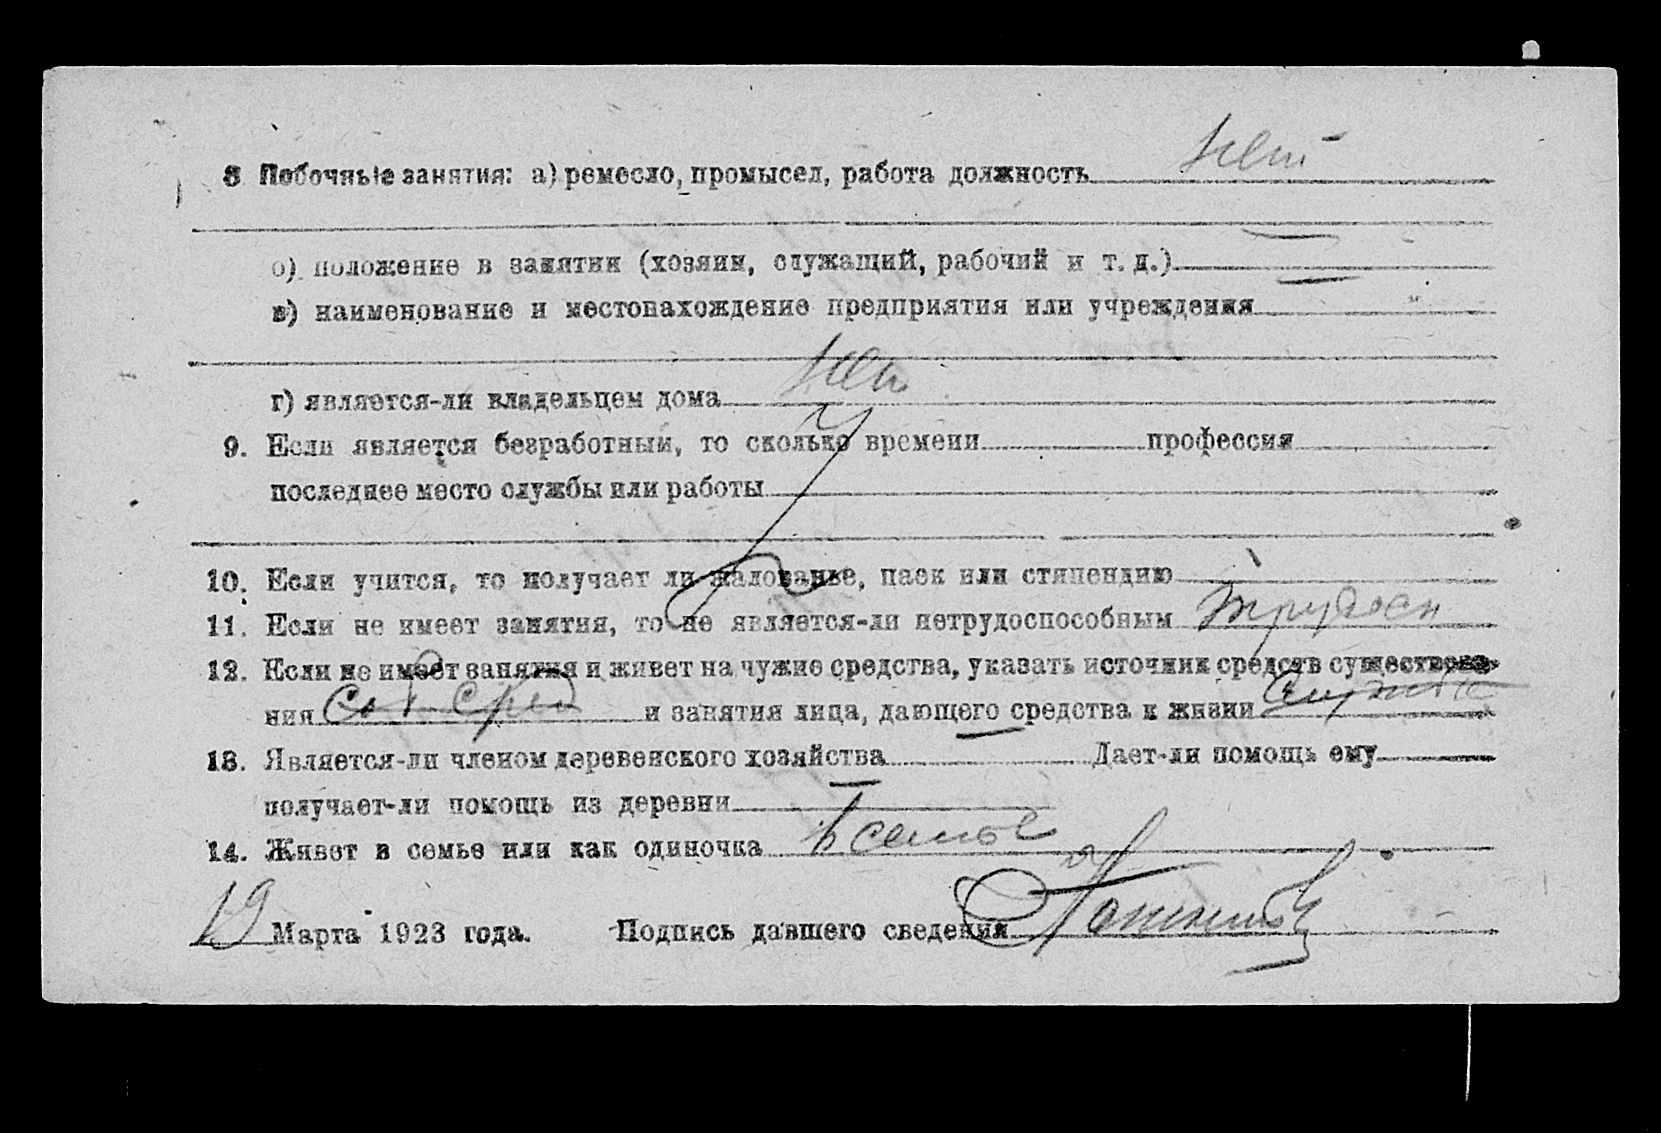 8 Побочные занятия: а) ремесло, промысел, работа должность нет
о) положение в занятии (хозяин, служащий, рабочий и т. д.)
в) наименование и местонахождение предприятия или учреждения
г) является-ли владельцем дома нет
9. Если является безработным, то сколько времени профессия
последнее место службы или работы
10. Если учится, то получает ли жалованье, паек или стипендию
11. Если не имеет занятия, то не является-ли нетрудоспособным трудосп
12. Если не имеет занятия и живет на чужие средства, указать источник средств существова-
ния соб сред и занятия лица, дающего средства к жизни
13. Является-ли членом деревенского хозяйства Дает-ли помощь ему
получает-ли помощь из деревни
14. Живет в семье или как одиночка в семье
19 Марта 1923 года. Подпись давшего сведения